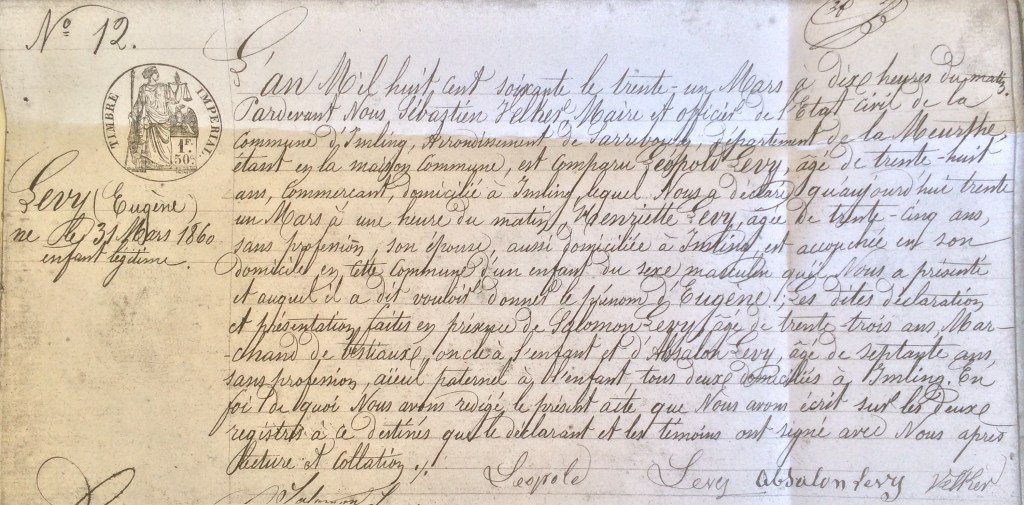 N° 12.
TIMBRE IMPERIAL.
1F.
50c.
Levy (Eugène)
né le 31 Mars 1860
enfant légitime.
L'an Mil huit cent soixante le trente-un Mars à dixe heures du matin.
Pardevant Nous Sébastien Velker, Maire et officier de l'Etat Civil de la
Commune d'Imling, Arrondissement de Sarrebourg, département de la Meurthe,
étant en la maison Commune, est comparu Léopold Levy, âgé de trente-huit
ans, Commercant, domicilié à Imling, lequel Nous a déclaré quaujourd'hui trente
un Mars à une heure du matin, Henriette Levy, agée de trente-cinq ans,
sans profession, son épouse, aussi domiciliée à Imling, est accouchée en son
domicile en cette Commune d'un enfant du sexe masculin qu'il Nous a présenté
et auquel il a dit vouloir donner le prénom d'Eugène; Les dites déclaration
et présentation faites en présence de Salomon Levy, âgé de trente-trois ans, Mar-
-chand de bestiaux, oncle à l'enfant et d'Absalon Levy, âgé de septante ans,
sans profession, aïeul paternel à l'enfant tous deux domiciliés à Imling. En
foi de quoi Nous avons rédigé le présent acte que Nous avons écrit sur les deux
registres à ce destinés que le déclarant et les témoins ont signé avec Nous après
lecture et Collation./.
Leopole Levy absalon levy Velker
Salomon